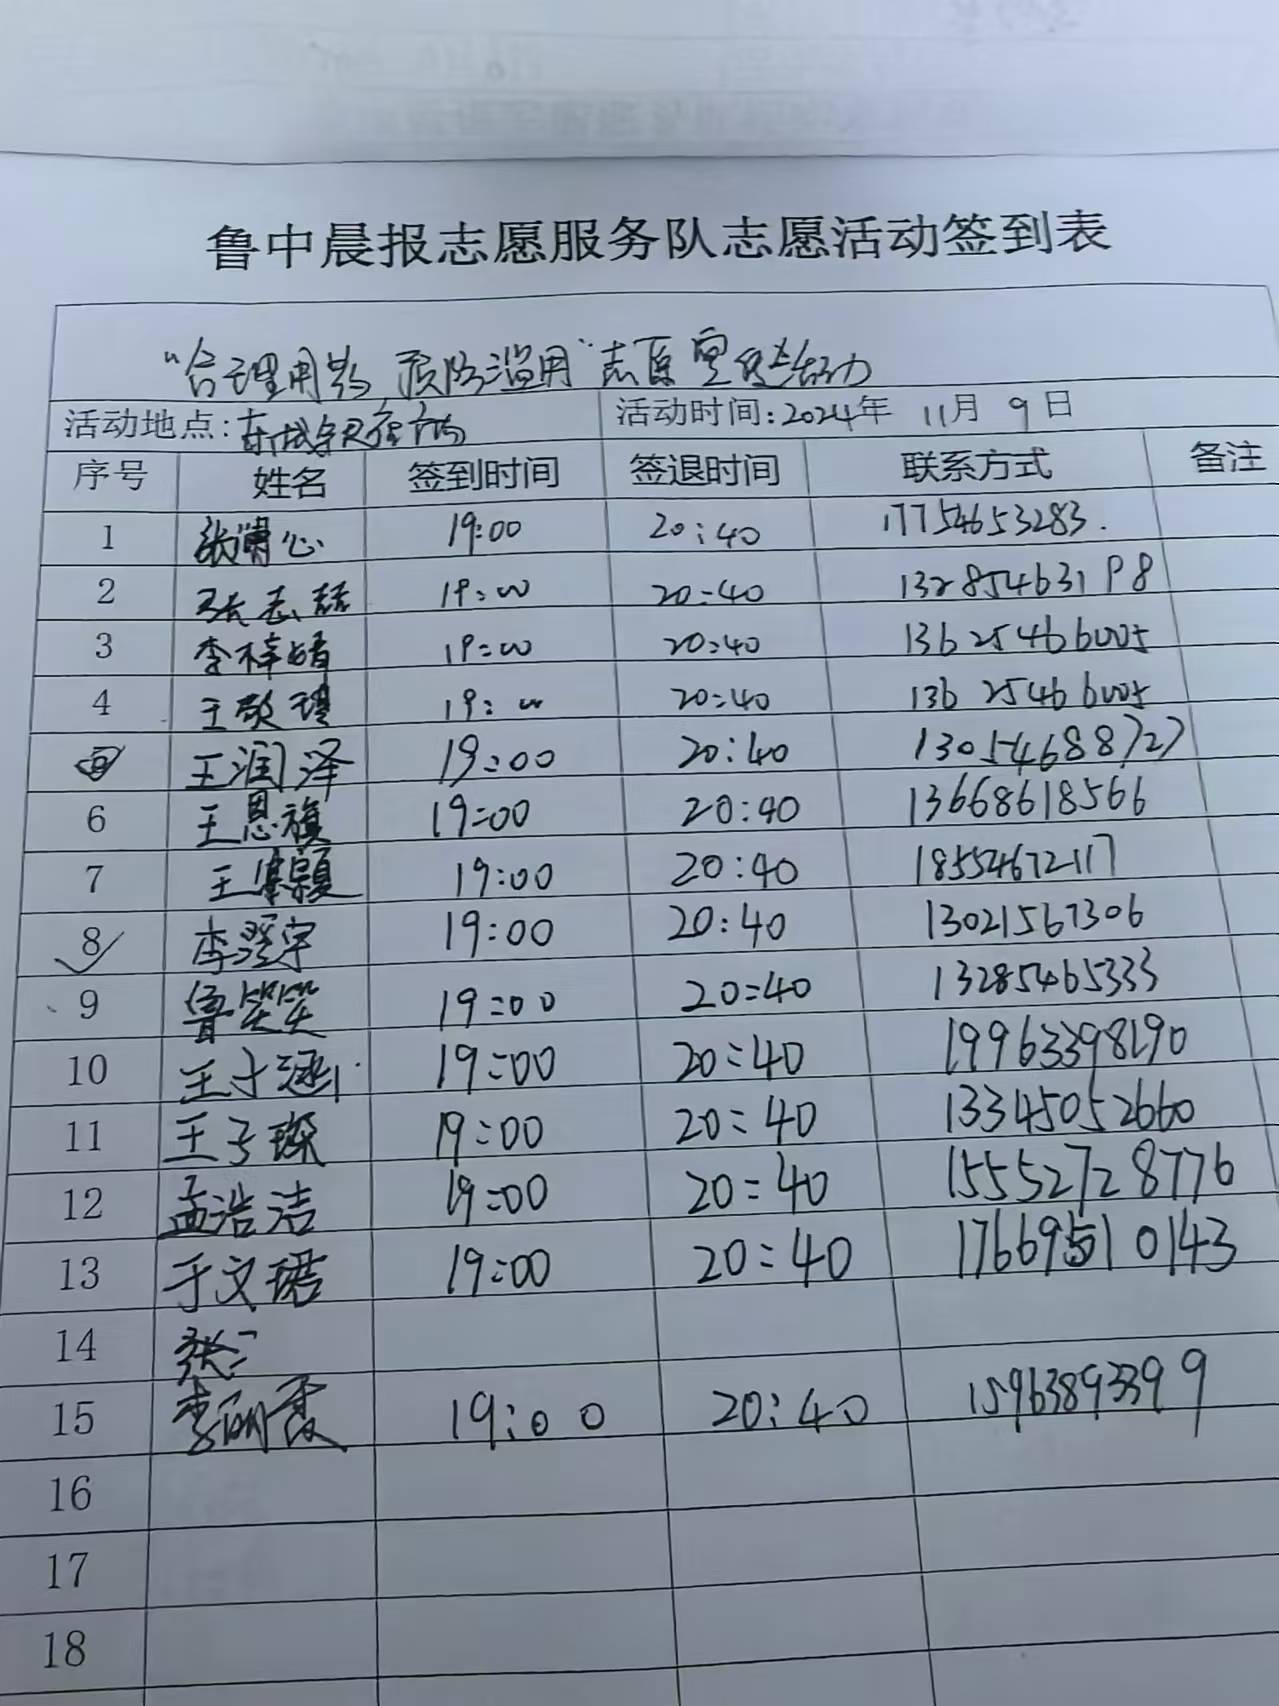 鲁中晨报志愿服务队志愿活动签到表
“合理用药,预防滥用”志愿宣传活动
活动地点: 活动时间:2024年 11月 9日
序号 姓名 签到时间 签退时间 联系方式 备注
1 张潇心 19:00 20:40 17754653283.
2 张志喆 19:00 20:40 13285463198
3 李梓婧 19:00 20:40 13625466005
4 王敬 19:00 20:40 13625466005
王润泽 19:00 20:40 13054688727
6 王恩祺 19:00 20:40 13668618566
7 王 颢 19:00 20:40 18554672117
8 李澄宇 19:00 20:40 13021567306
9 鲁笑笑 19:00 20:40 13285465333
10 王才涵 19:00 20:40 19963398190
11 王子琛 19:00 20:40 13345052660
12 孟浩洁 19:00 20:40 15552728776
13 于文珺 19:00 20:40 17669510143
14 张
15 李丽霞 19:00 20:40 15963893399
16
17
18